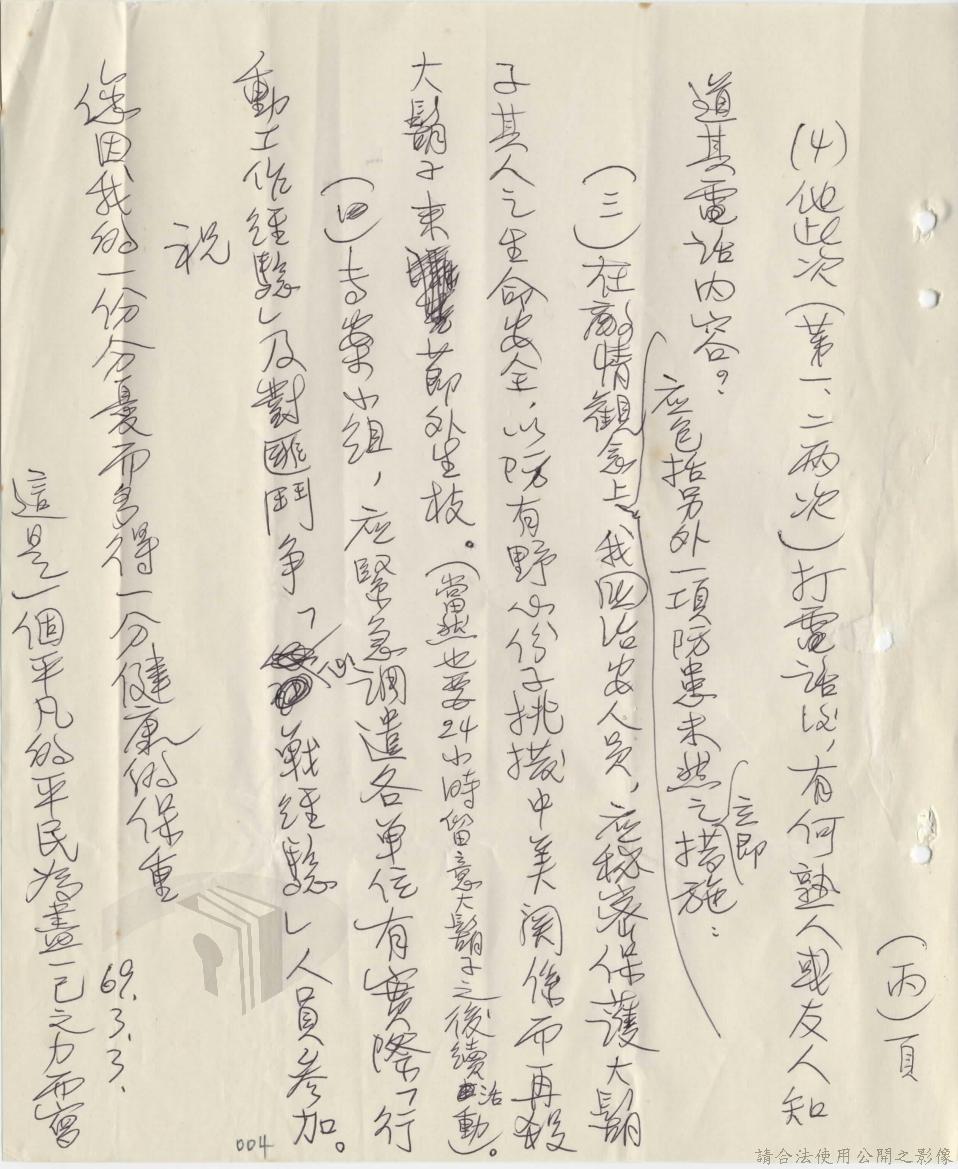 (丙)頁
(4)他此次(第一、二兩次)打電話後,有何熟人或友人知
道其電話內容?
应包括另外一項防患未然之措施:
立即
(三)在敵情觀念上,我国治安人員,应秘密保護大鬍
子其人之生命安全,以防有野心份子挑撥中美関係而再殺
大鬍子來節外生枝。(當然也要24小時留意大鬍子之後續活動)。
(四)专案小組,应緊急調遣各单位有實際「行
動工作經驗」及對匪鬥争「作戰經驗」人員参加。
祝
您因我的一份分憂而多得一分健康的保重
69.3.3.
這是一個平凡的平民為盡一己之力而寫
004
請合法使用公開之影像